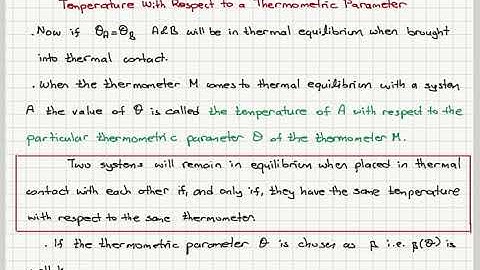 Temperature With Respect to a Thermometric Parameter
. Now if θA=θB A&B will be in thermal equilibrium when brought
into thermal contact.
. When the thermometer M comes to thermal equilibrium with a system
A the value of θ is called the temperature of A with respect to the
particular thermometric parameter θ of the thermometer M.
Two systems will remain in equilibrium when placed in thermal
contact with each other if, and only if, they have the same temperature
with respect to the same thermometer.
. If the thermometric parameter θ is chosen as β i.e. β(θ) is